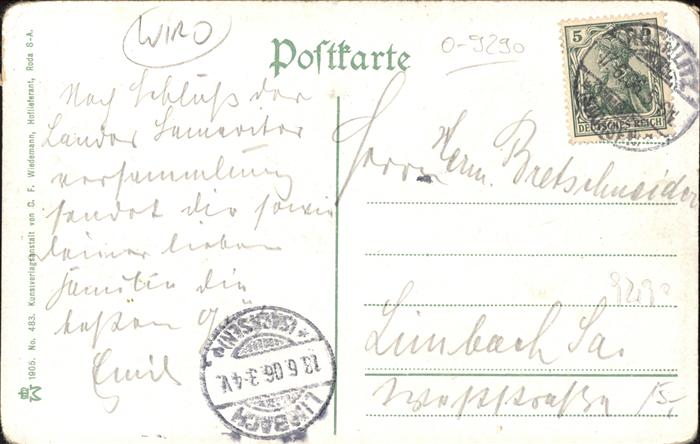 WIRO
Postkarte
0-9290
5 5
DEUTSCHES REICH
Nach Schluß der
Landes Samariter
versammlung
sendet dir sowie
deiner lieben
Familie die
besten
Emil
Herrn Herm. Bretschneider
9290
Limbach Sa.
Weststraße 15,-
LIMBACH
13.6.06.3-4V.
* (SACHSEN) *
1905. No. 483. Kunstverlagsanstalt von C. F. Wiedemann, Hoflieferant, Roda S-A.